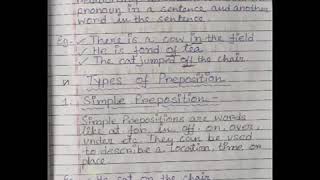 pronoun in a sentence and another
word in the sentence.
Eg- ✓ There is a cow in the field
✓ He is fond of tea
✓ The cat jumped off the chair
Types of Preposition
1. Simple Preposition -
Simple Prepositions are words
like at, for, in, off, on, over,
under etc. They can be used
to describe a location, time or
place
He sat on the chair